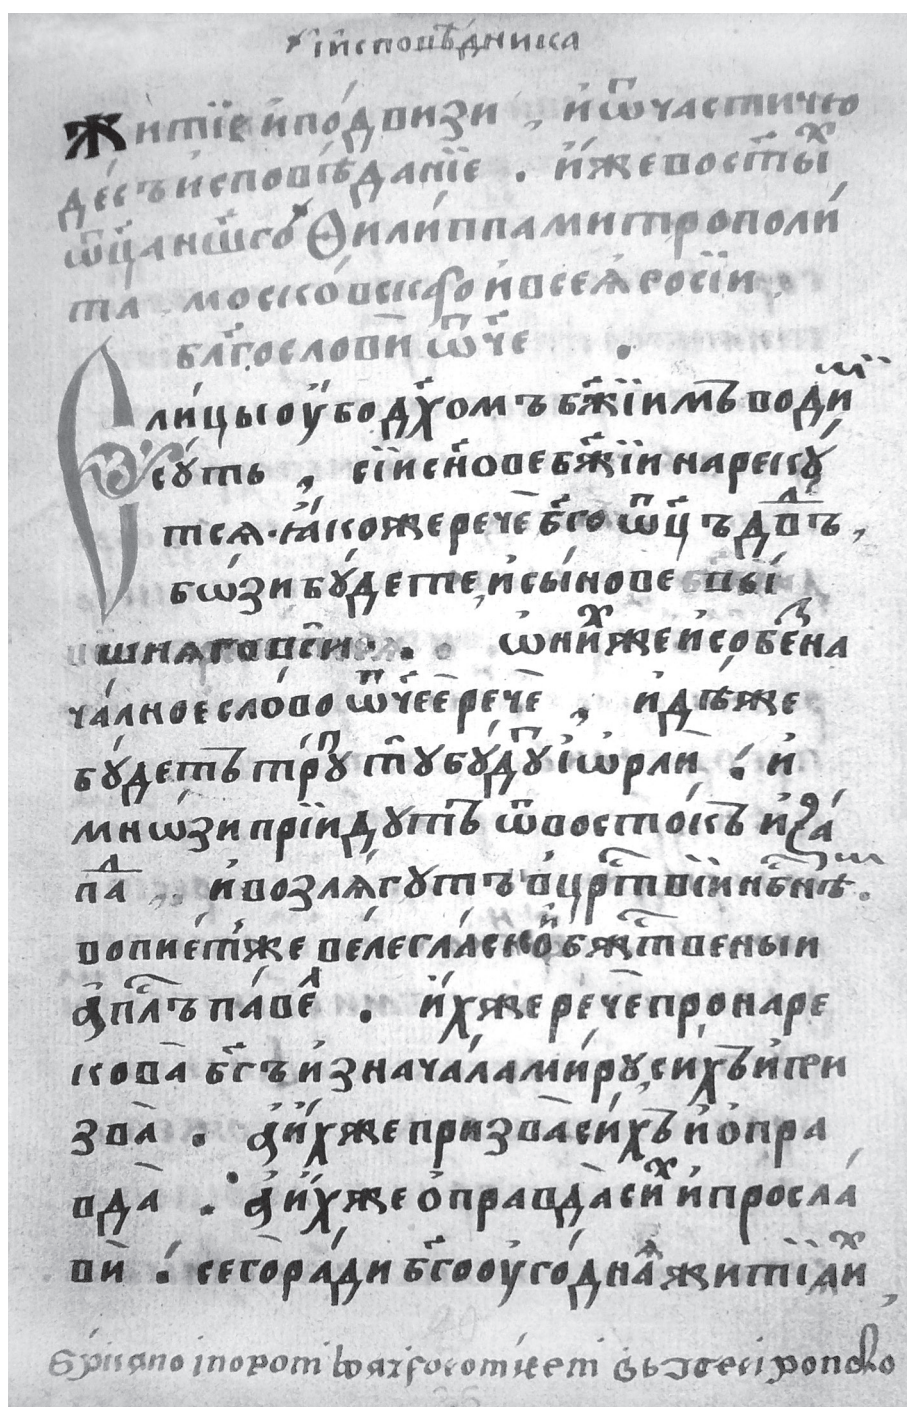 и҆ исповѣ́дника
Житїе и҆ по́двизи , и҆ ѿчасти чю
де́съ и҆сповѣ́данїе . и҆́же во ст҃ы́ⷯ
ѿц҃а на́шегѡ Ѳили́ппа митрополи́
та моско́вскаго и҆ всеѧ̀ росїи
бл҃гослови ѿч҃е .
Єли́цы ᲂу҆́бо дх҃омъ бж҃їимъ води́ми
су́ть , сїи сн҃ове бж҃їи нареку́
тсѧ . ꙗ҆́коже рече бг҃оѿц҃ъ дв҃дъ ,
бѡ́зи бу́дете , и҆ сы́нове вы́
шнѧго вси̂ . ѡ҆ ни́ⷯже и҆ собезна
ча́лное сло́во ѿч҃ее рече̂ , и҆дѣ́же
бу́детъ тру́пъ , ту бу́дуⷮ и҆ ѻ҆рли̂ . и҆
мнѡ́зи прїи́дутъ ѿ восто́къ и҆ за́
паⷣ , и҆ возлѧ́гутъ в црⷭ҇твїи нбⷭ҇нѣмъ .
вопие́т же велегла́сно и҆ бжⷭ҇твеный
а҆пⷭ҇лъ па́веⷧ . и҆́хже рече̂ пронаре
кова̂ бг҃ъ и҆з нача́ла ми́ру , си́хъ и҆ при
зва̀ . а҆ и҆́хже призва̀ си́хъ и҆ ѻ҆пра
вда̀ . а҆ и҆́хже ѻ҆правда̀ си́ⷯ и҆ просла́
ви̂ . сего ра́ди бг҃оᲂуго́дnaѧ житїѧ̀ и҆ⷯ ,